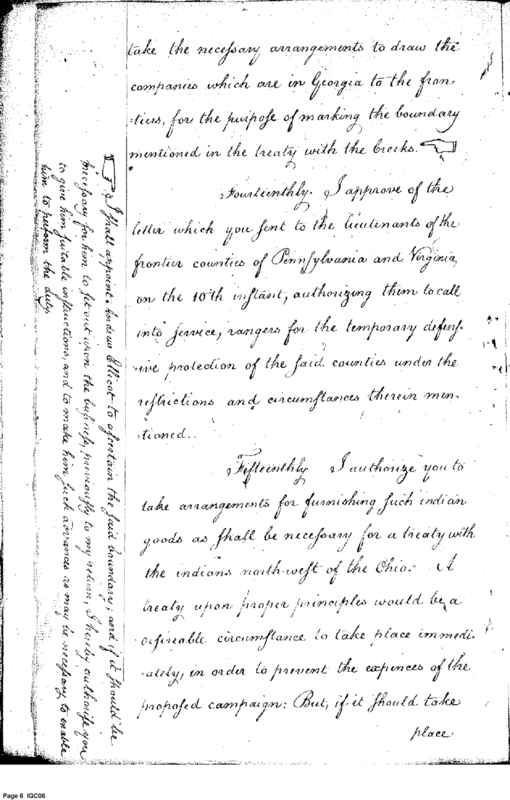 take the necessary arrangements to draw the
companies which are in Georgia to the fron-
-tiers, for the purpose of marking the boundary
mentioned in the treaty with the Creeks.
Fourteenthly. I approve of the
letter which you sent to the lieutenants of the
frontier counties of Pennsylvania and Virginia,
on the 10th instant, authorizing them to call
into service, rangers for the temporary defens-
-ive protection of the said counties under the
restrictions and circumstances therein men-
-tioned.
Fifteenthly I authorize you to
take arrangements for furnishing such indian
goods as shall be necessary for a treaty with
the indians north-west of the Ohio. A
treaty upon proper principles would be a
desireable circumstance to take place immedi-
-ately, in order to prevent the expences of the
proposed campaign: But, if it should take
place
I shall appoint Andrew Ellicot to ascertain the said boundary; and if it should be
necessary for him to set out upon the business, previously to my return, I hereby authorise you
to give him suitable instructions, and to make him such advances as may be necessary to enable
him to perform the duty.
Page 6 IGC06